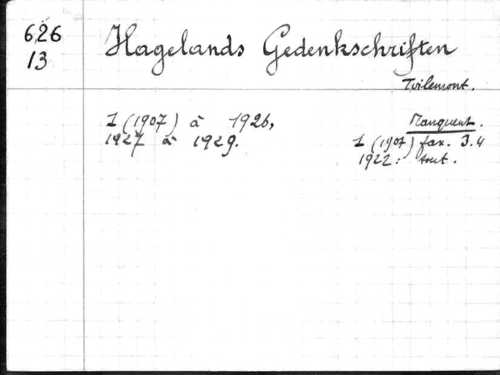 626
13
Hagelands Gedenkschriften
Tirlemont.
1 (1907) à 1926,
1927 à 1929.
Manquent.
1 (1907) fax. 3.4
1922: tout.